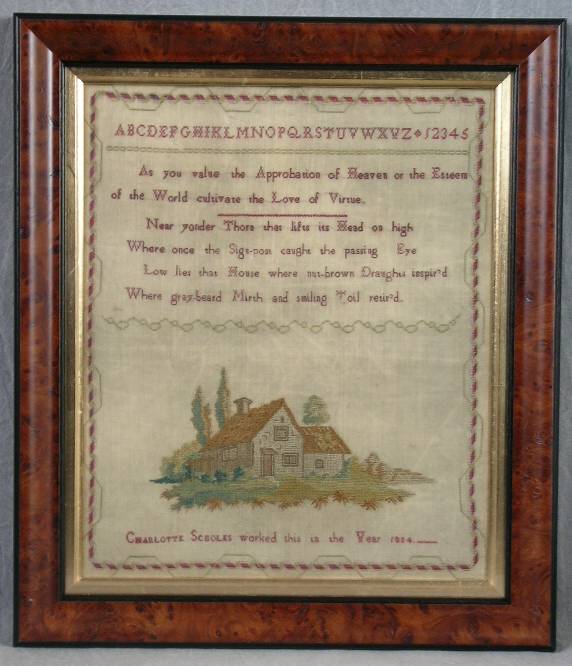 ABCDEFGHIKLMNOPQRSTUVWXYZ 12345
As you value the Approbation of Heaven or the Esteem
of the World cultivate the Love of Virtue.
Near yonder Thorn that lifts its Head on high
Where once the Sign-post caught the passing Eye
Low lies that House where nut-brown Draughts inspir'd
Where gray-beard Mirth and smiling Toil retir'd.
CHARLOTTE SCHOLES worked this in the Year